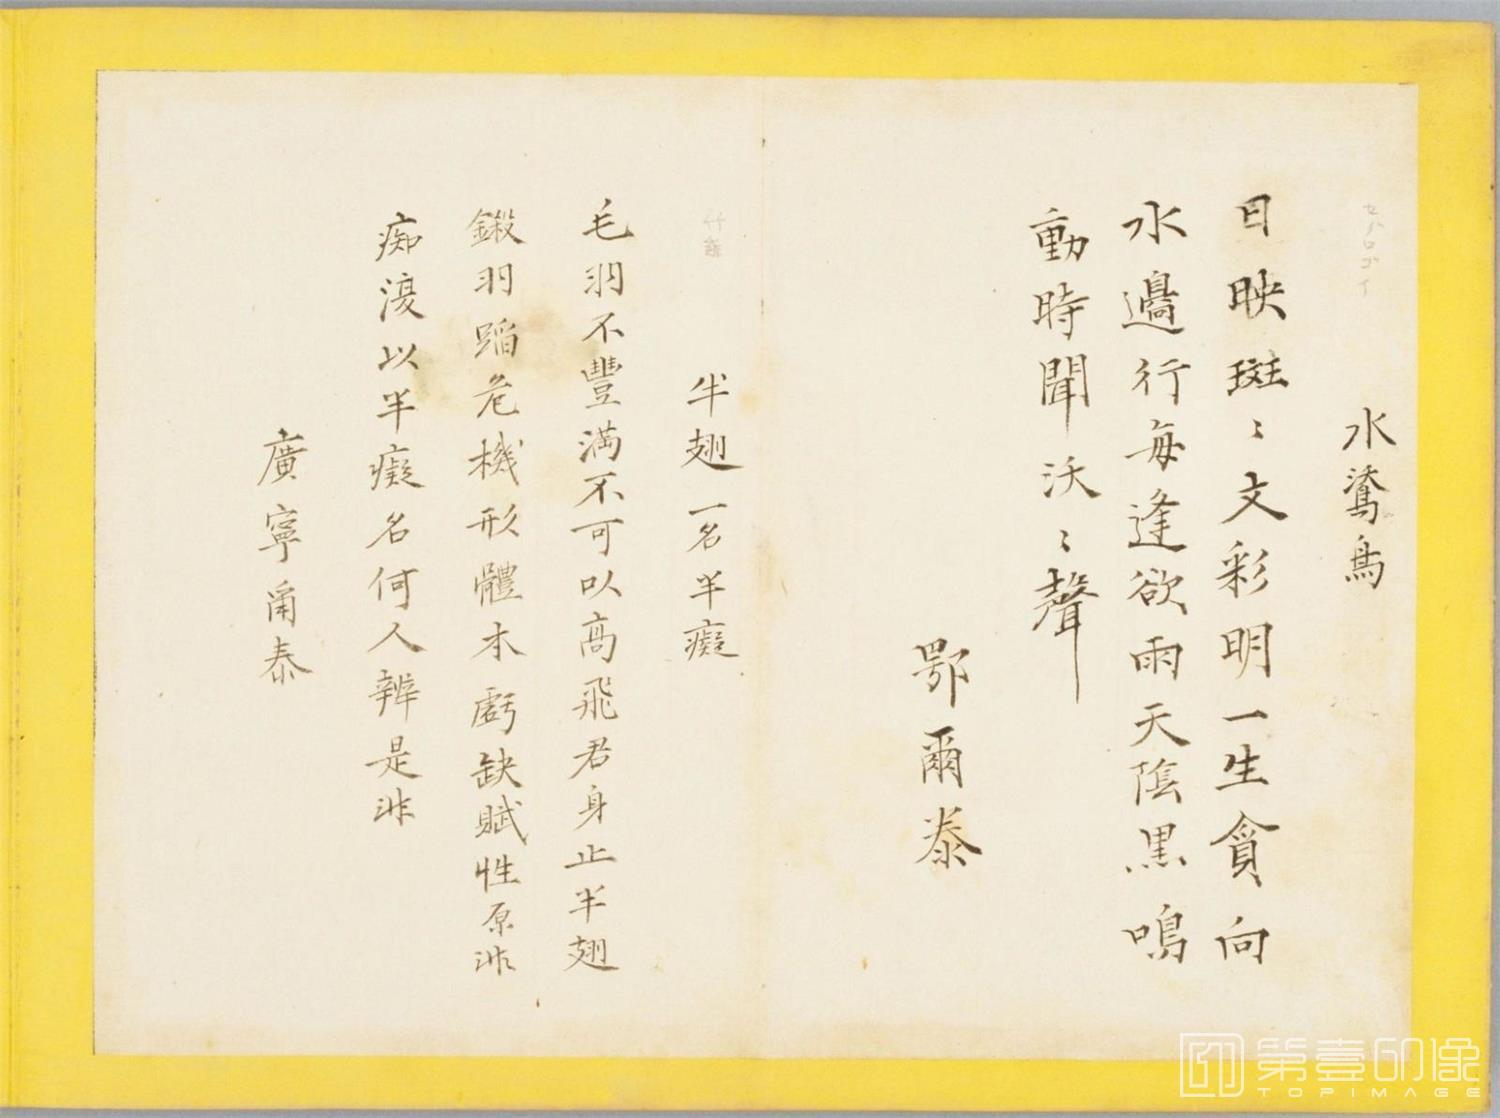 水鶿鳥
日映斑〻文彩明一生貪向
水邊行每逢欲雨天陰黑鳴
動時聞沃〻聲
鄂爾泰
半翅一名半癡
毛羽不豐滿不可以高飛君身止半翅
鎩羽蹈危機形體本虧缺賦性原非
痴謾以半癡名何人辨是非
廣寧甯泰
第壹印像
TOPIMAGE